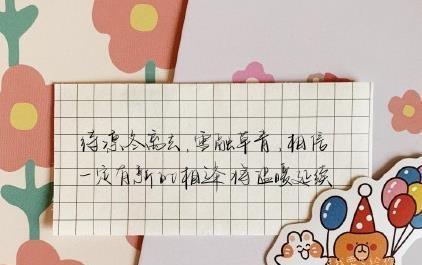 待凛冬离去，雪融草青，相信
一定有新的相逢将温暖延续